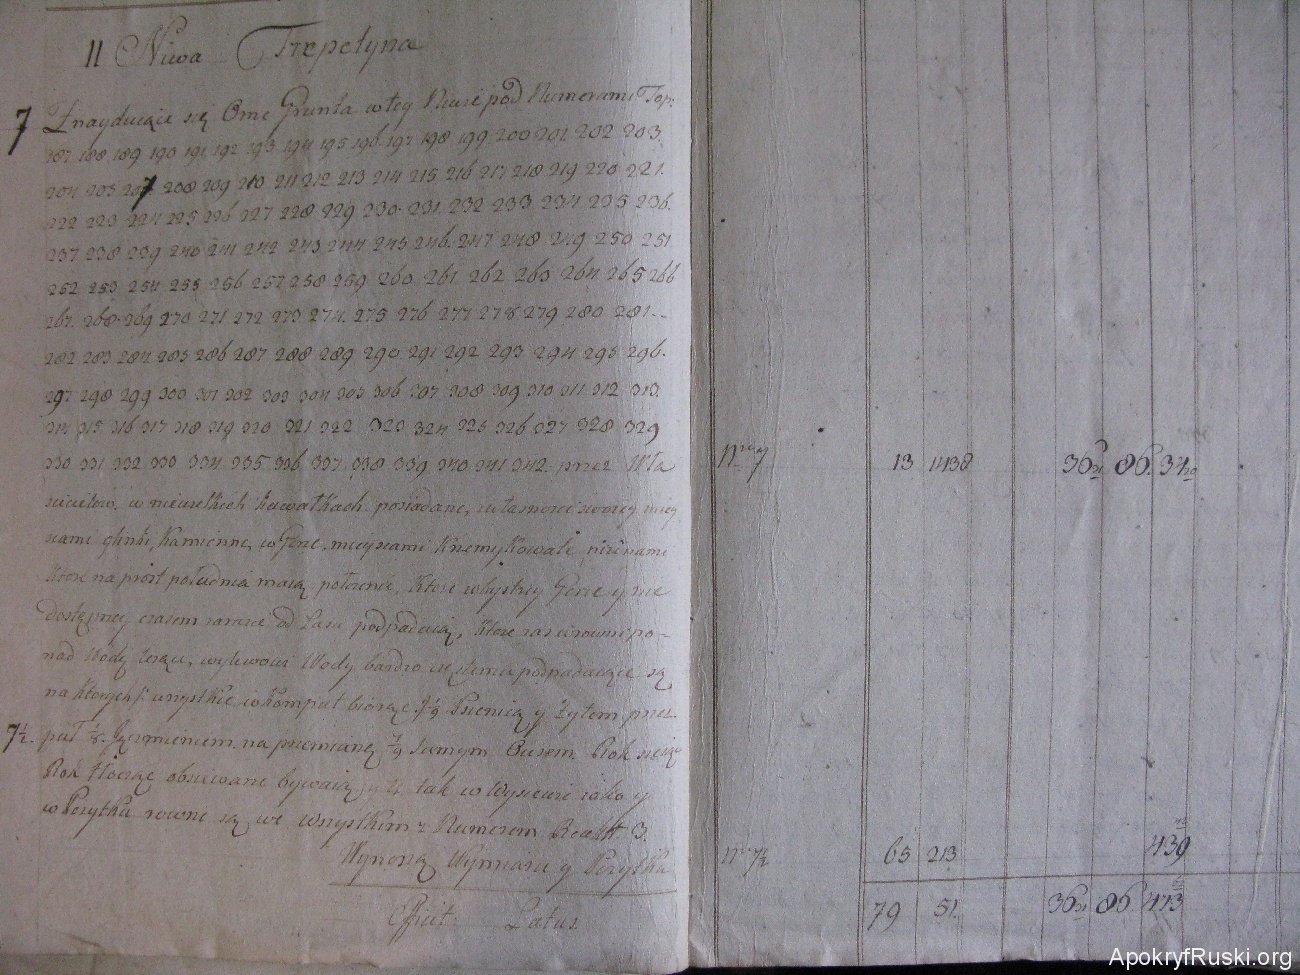 II Niwa Trepetyna
7 Znayduiące się Orne Grunta w tey Niwie pod Numerami Top:
187. 188. 189. 190. 191. 192. 193. 194. 195. 196. 197. 198. 199. 200. 201. 202. 203.
204. 205. 207. 208. 209. 210. 211. 212. 213. 214. 215. 216. 217. 218. 219. 220. 221.
222. 223. 224. 225. 226. 227. 228. 229. 230. 231. 232. 233. 234. 235. 236.
237. 238. 239. 240. 241. 242. 243. 244. 245. 246. 247. 248. 249. 250. 251.
252. 253. 254. 255. 256. 257. 258. 259. 260. 261. 262. 263. 264. 265. 266
267. 268. 269. 270. 271. 272. 273. 274. 275. 276. 277. 278. 279. 280. 281.
282. 283. 284. 285. 286. 287. 288. 289. 290. 291. 292. 293. 294. 295. 296.
297. 298. 299. 300. 301. 302. 303. 304. 305. 306. 307. 308. 309. 310. 311. 312. 313.
314. 315. 316. 317. 318. 319. 320. 321. 322. 323. 324. 325. 326. 327. 328. 329
330. 331. 332. 333. 334. 335. 336. 337. 338. 339. 340. 341. 342. przez Wła
scicielow, w niewielkich kawałkach posiadane, z własności swoiey miey
scami glinki, kamienne, w Gorze mieyscami
ktore na prost południa maią położenie, ktore w bystrey Gorze y nie
dostępney czasem od Lasu podpadaią, ktore zas w rowni po-
nad Wody leżące, wylewowi Wody bardzo podpadaiące są
na ktorych wszystkie w komput biorąc Psenicą y Żytem
7½. Jęczmieniem, na przemianę samym Owsem Rok w
Rok obsiewane bywaią, y tak w Wysiewie iako y
w Pożytku rowne są we wszystkim z Numerem 3.
Wynoszą Wymiaru y Pożytku
Latus.
Nro 7 13 1438 36 86. 34
Nro 7½ 65 213 439
79 51. 36 86 473
ApokryfRuski.org